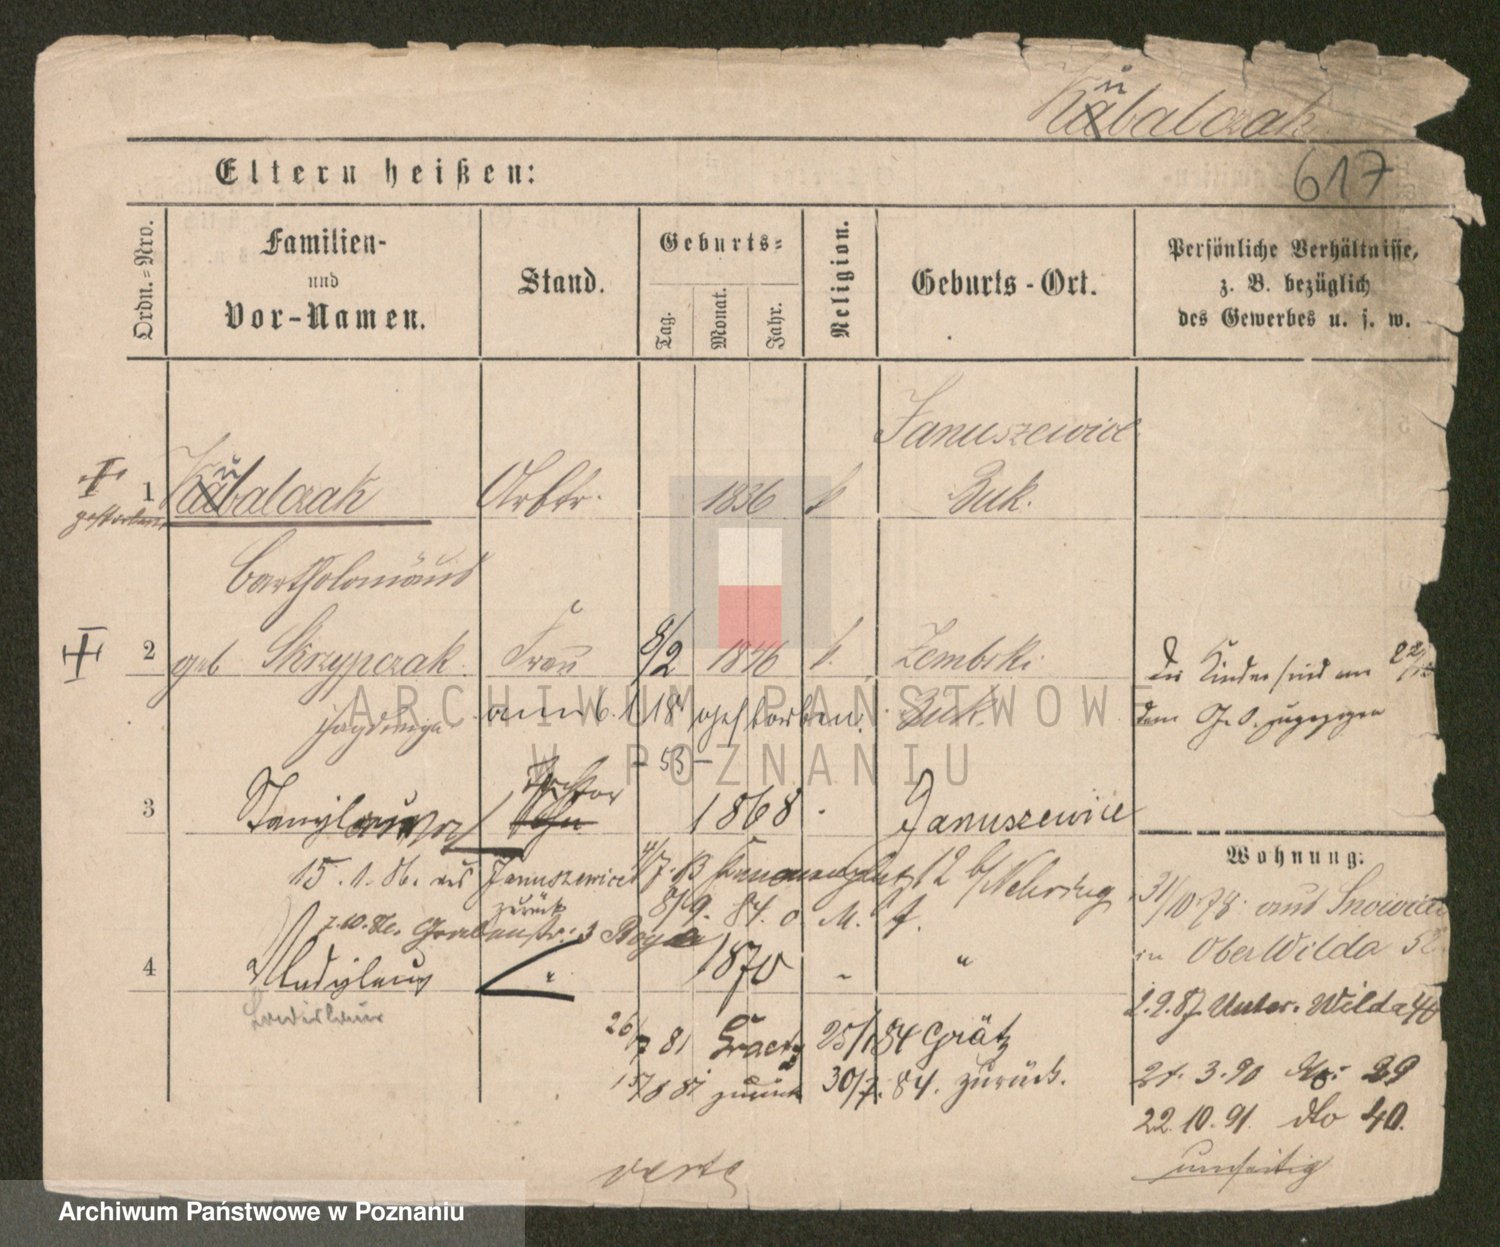 Kübalczak
617
Eltern heißen:
Ordn.-Nro.
Familien-
und
Vor-Namen.
Stand.
Geburts-
Tag.
Monat.
Jahr.
Religion.
Geburts-Ort.
Persönliche Verhältnisse,
z. B. bezüglich
des Gewerbes u. s. w.
Januszewice
1 Kübalczak Arbtr. 1836 k Buk.
gestorben
Bartholomäus
2 geb Skrzypczak Frau 8/2 1846 k. Zembski
Die Kinder sind am
Hedwiga am 6. 1. 18 gestorben. Buk.
dem G. O. zugezogen
53
ARCHIWUM PAŃSTWOWE
W POZNANIU
Tochter
3 Sohn 1868 Januszewice
Wohnung:
15. 1. 86. aus Januszewice 12 b/Nehring
zurück
7.10.86. Grabenstr. 3 8/9. 84. o. M. f.
31/10 78 aus
in Ober Wilda
4 Wladislaus " 1870 - "
Ladislaus
2.9.87. Unter-Wilda
26/7 81 Graetz 25/1 84 Grätz
15/8 81 zurück 30/7. 84. zurück.
21. 3. 90 No. 29
22. 10. 91. dto 40.
umseitig
verte
Archiwum Państwowe w Poznaniu